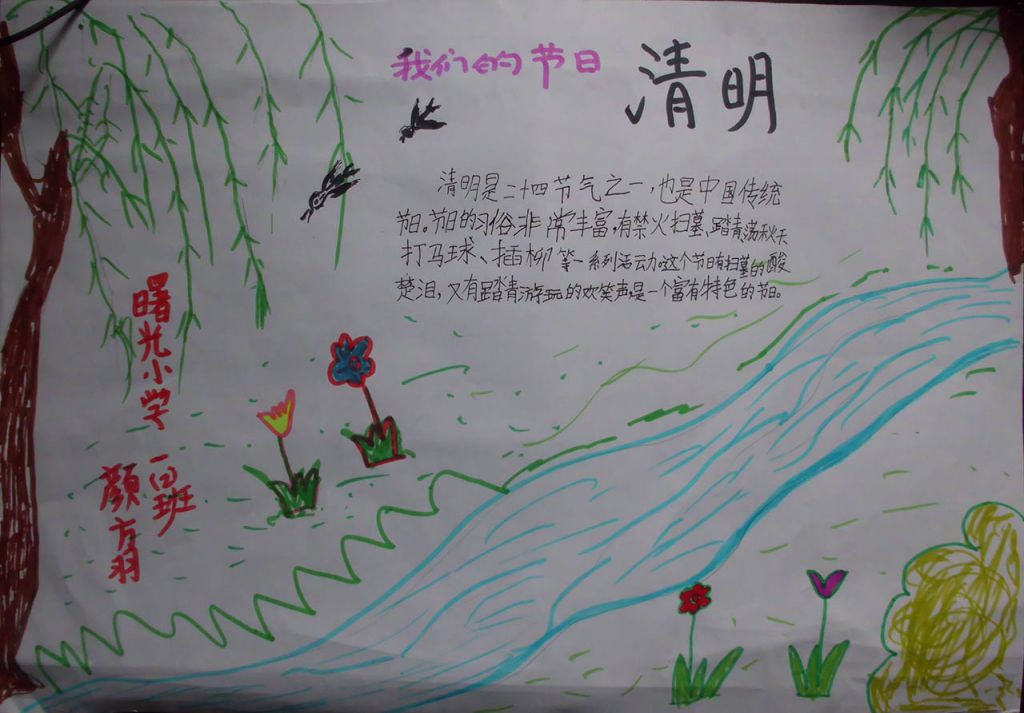 我们的节日
清明
清明是二十四节气之一,也是中国传统
节日。节日的习俗非常丰富,有禁火扫墓、踏青荡秋千
打马球、插柳等一系列活动。这个节日有扫墓的酸
楚泪,又有踏青游玩的欢笑声。是一个富有特色的节日。
曙光小学
一班
颜方羽